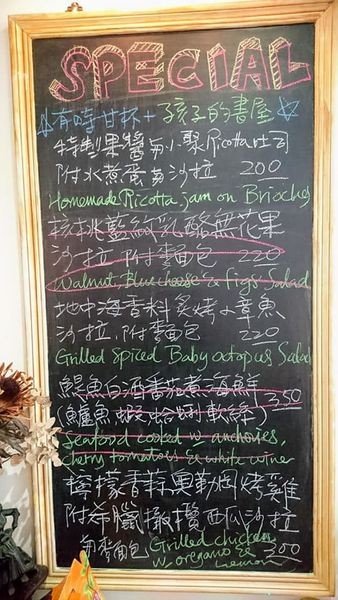 SPECIAL
有時甘杯+孩子的書屋
特製果醬與小聚Ricotta吐司
附水煮蛋與沙拉 200
Homemade Ricotta Jam on Brioches
核桃藍紋乳酪無花果
沙拉,附麵包 220
Walnut, Blue cheese & figs Salad
地中海香料炙烤小章魚
沙拉,附麵包 220
Grilled Spiced Baby octopus Salad
鯷魚白酒番茄煮海鮮 350
(鱸魚,蝦,蛤蜊,軟絲)
Seafood cooked w anchovies,
cherry tomatoes & white wine
檸檬香蒜奧勒岡烤雞
附希臘橄欖西瓜沙拉
與麵包 Grilled chicken 300
w. oregano & Lemon